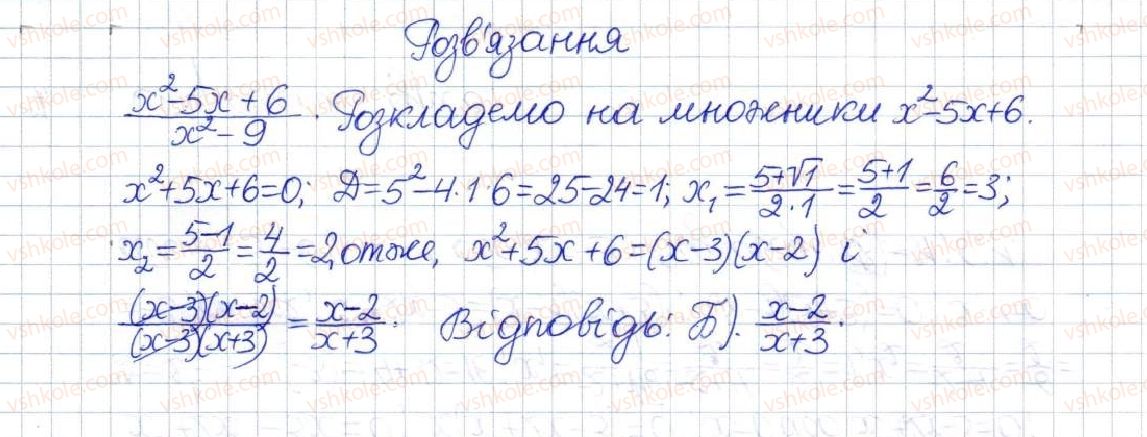 Розв'язання
(x²-5x+6)/(x²-9). Розкладемо на множники x²-5x+6.
x²+5x+6=0; Д=5²-4·1·6=25-24=1; x₁=(5+√1)/(2·1)=(5+1)/2=6/2=3;
x₂=(5-1)/2=4/2=2, отже, x²+5x+6=(x-3)(x-2) і
((x-3)(x-2))/((x-3)(x+3))=(x-2)/(x+3). Відповідь: Б). (x-2)/(x+3).